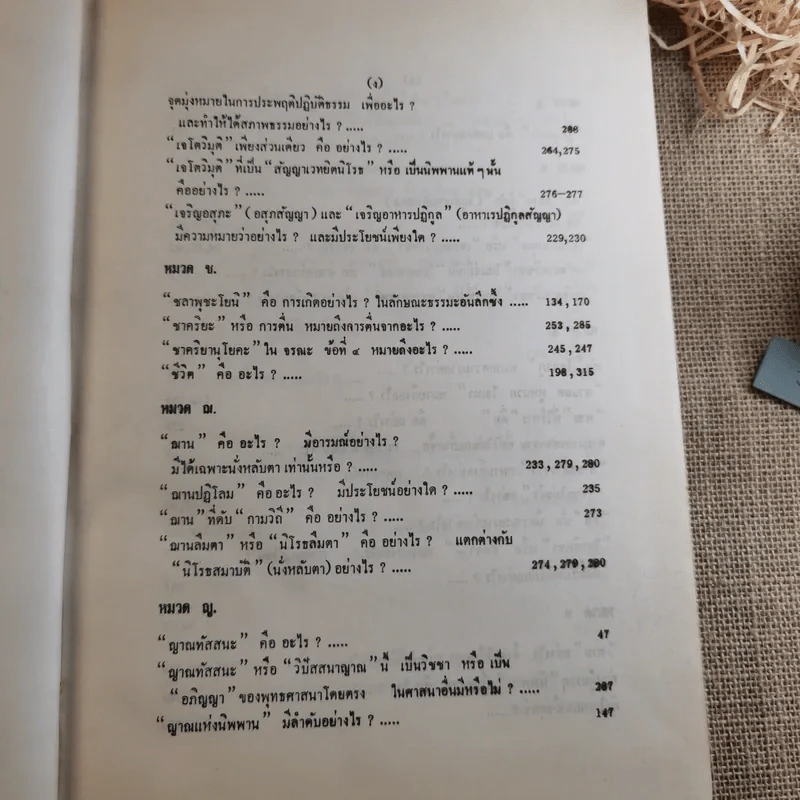 (ง)
จุดมุ่งหมายในการประพฤติปฏิบัติธรรม เพื่ออะไร ?
และทำให้ได้สภาพธรรมอย่างไร ? ..... 288
“เจโตวิมุติ” เพียงส่วนเดียว คือ อย่างไร ? ..... 264,275
“เจโตวิมุติ” ที่เป็น “สัญญาเวทยิตนิโรธ” หรือ เป็นนิพพานแท้ ๆ นั้น
คืออย่างไร ? ..... 276–277
“เจริญอสุภะ” (อสุภสัญญา) และ “เจริญอาหารปฏิกูล” (อาหาเรปฏิกูลสัญญา)
มีความหมายว่าอย่างไร ? และมีประโยชน์เพียงใด ? ..... 229,230
หมวด ช.
“ชลาพุชะโยนิ” คือ การเกิดอย่างไร ? ในลักษณะธรรมะอันลึกซึ้ง ..... 134,170
“ชาคริยะ” หรือ การตื่น หมายถึงการตื่นจากอะไร ? ..... 253,285
“ชาคริยานุโยคะ” ใน จรณะ ข้อที่ ๔ หมายถึงอะไร ? ..... 245,247
“ชีวิต” คือ อะไร ? ..... 198,315
หมวด ฌ.
“ฌาน” คือ อะไร ? มีอารมณ์อย่างไร ?
มีได้เฉพาะนั่งหลับตา เท่านั้นหรือ ? ..... 233,279,280
“ฌานปฏิโลม” คือ อะไร ? มีประโยชน์อย่างใด ? ..... 235
“ฌาน” ที่ดับ “กามวิถี” คือ อย่างไร ? ..... 273
“ฌานลืมตา” หรือ “นิโรธลืมตา” คือ อย่างไร ? แตกต่างกับ
“นิโรธสมาบัติ” (นั่งหลับตา) อย่างไร ? ..... 274,279,280
หมวด ญ.
“ญาณทัสสนะ” คือ อะไร ? ..... 47
“ญาณทัสสนะ” หรือ “วิปัสสนาญาณ” นี้ เป็นวิชชา หรือ เป็น
“อภิญญา” ของพุทธศาสนาโดยตรง ในศาสนาอื่นมีหรือไม่ ? ..... 287
“ญาณแห่งนิพพาน” มีลำดับอย่างไร ? ..... 147